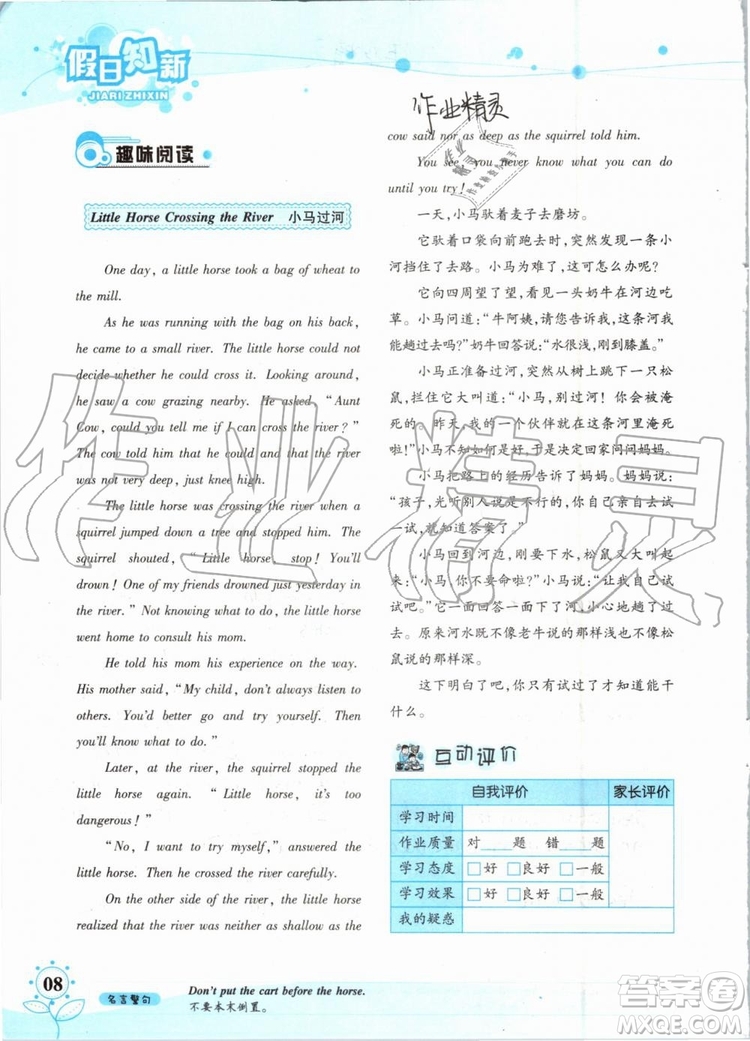 假日知新
JIARI ZHIXIN
趣味阅读
Little Horse Crossing the River 小马过河
One day, a little horse took a bag of wheat to
the mill.
As he was running with the bag on his back,
he came to a small river. The little horse could not
decide whether he could cross it. Looking around,
he saw a cow grazing nearby. He asked, “Aunt
Cow, could you tell me if I can cross the river?”
The cow told him that he could and that the river
was not very deep, just knee high.
The little horse was crossing the river when a
squirrel jumped down a tree and stopped him. The
squirrel shouted, “Little horse, stop! You'll
drown! One of my friends drowned just yesterday in
the river.” Not knowing what to do, the little horse
went home to consult his mom.
He told his mom his experience on the way.
His mother said, “My child, don't always listen to
others. You'd better go and try yourself. Then
you'll know what to do.”
Later, at the river, the squirrel stopped the
little horse again. “Little horse, it's too
dangerous!”
“No, I want to try myself,” answered the
little horse. Then he crossed the river carefully.
On the other side of the river, the little horse
realized that the river was neither as shallow as the
作业精灵
cow said nor as deep as the squirrel told him.
You see, you never know what you can do
until you try!
一天，小马驮着麦子去磨坊。
它驮着口袋向前跑去时，突然发现一条小
河挡住了去路。小马为难了，这可怎么办呢？
它向四周望了望，看见一头奶牛在河边吃
草。小马问道：“牛阿姨，请您告诉我，这条河我
能趟过去吗？”奶牛回答说：“水很浅，刚到膝盖。”
小马正准备过河，突然从树上跳下一只松
鼠，拦住它大叫道：“小马，别过河！你会被淹
死的。昨天，我的一个伙伴就在这条河里淹死
啦！”小马不知如何是好，于是决定回家问问妈妈。
小马把路上的经历告诉了妈妈。妈妈说：
“孩子，光听别人说是不行的，你自己亲自去试
一试，就知道答案了。”
小马回到河边，刚要下水，松鼠又大叫起
来：“小马，你不要命啦？”小马说：“让我自己试
试吧。”它一面回答一面下了河，小心地趟了过
去。原来河水既不像老牛说的那样浅也不像松
鼠说的那样深。
这下明白了吧，你只有试过了才知道能干
什么。
互动评价
自我评价 家长评价
学习时间
作业质量 对 题 错 题
学习态度 □好 □良好 □一般
学习效果 □好 □良好 □一般
我的疑惑
08
名言警句
Don't put the cart before the horse.
不要本末倒置。
作业精灵
答案圈
MXQE.COM